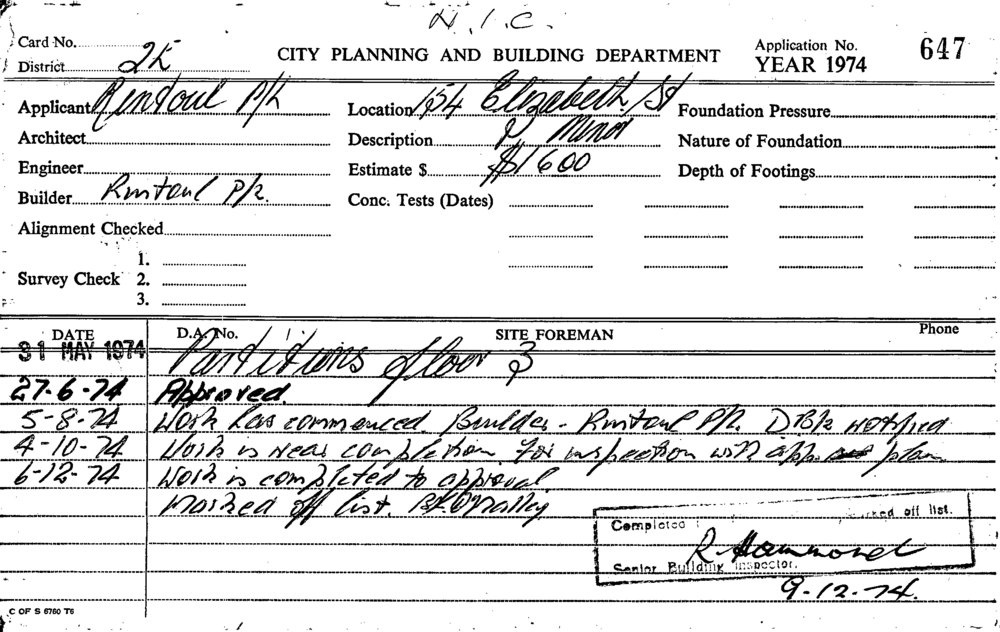 N.I.C.
Card No.
District 2E
CITY PLANNING AND BUILDING DEPARTMENT
Application No. 647
YEAR 1974
Applicant Rintoul P/L
Location 154 Elizabeth St
Foundation Pressure
Architect
Description Minor
Nature of Foundation
Engineer
Estimate $ $1600
Depth of Footings
Builder Rintoul P/L.
Conc. Tests (Dates)
Alignment Checked
Survey Check 1.
2.
3.
DATE D.A. No. SITE FOREMAN Phone
31 MAY 1974 Partitions floor 3
27-6-74 Approved.
5-8-74 Work has commenced. Builder - Rintoul P/L. notified
4-10-74 Work is near completion for inspection with app plan
6-12-74 Work is completed to approval
Marked off list.
Completed marked off list.
R Hammond
Senior Building Inspector.
9-12-74.
C OF S 6760 T6